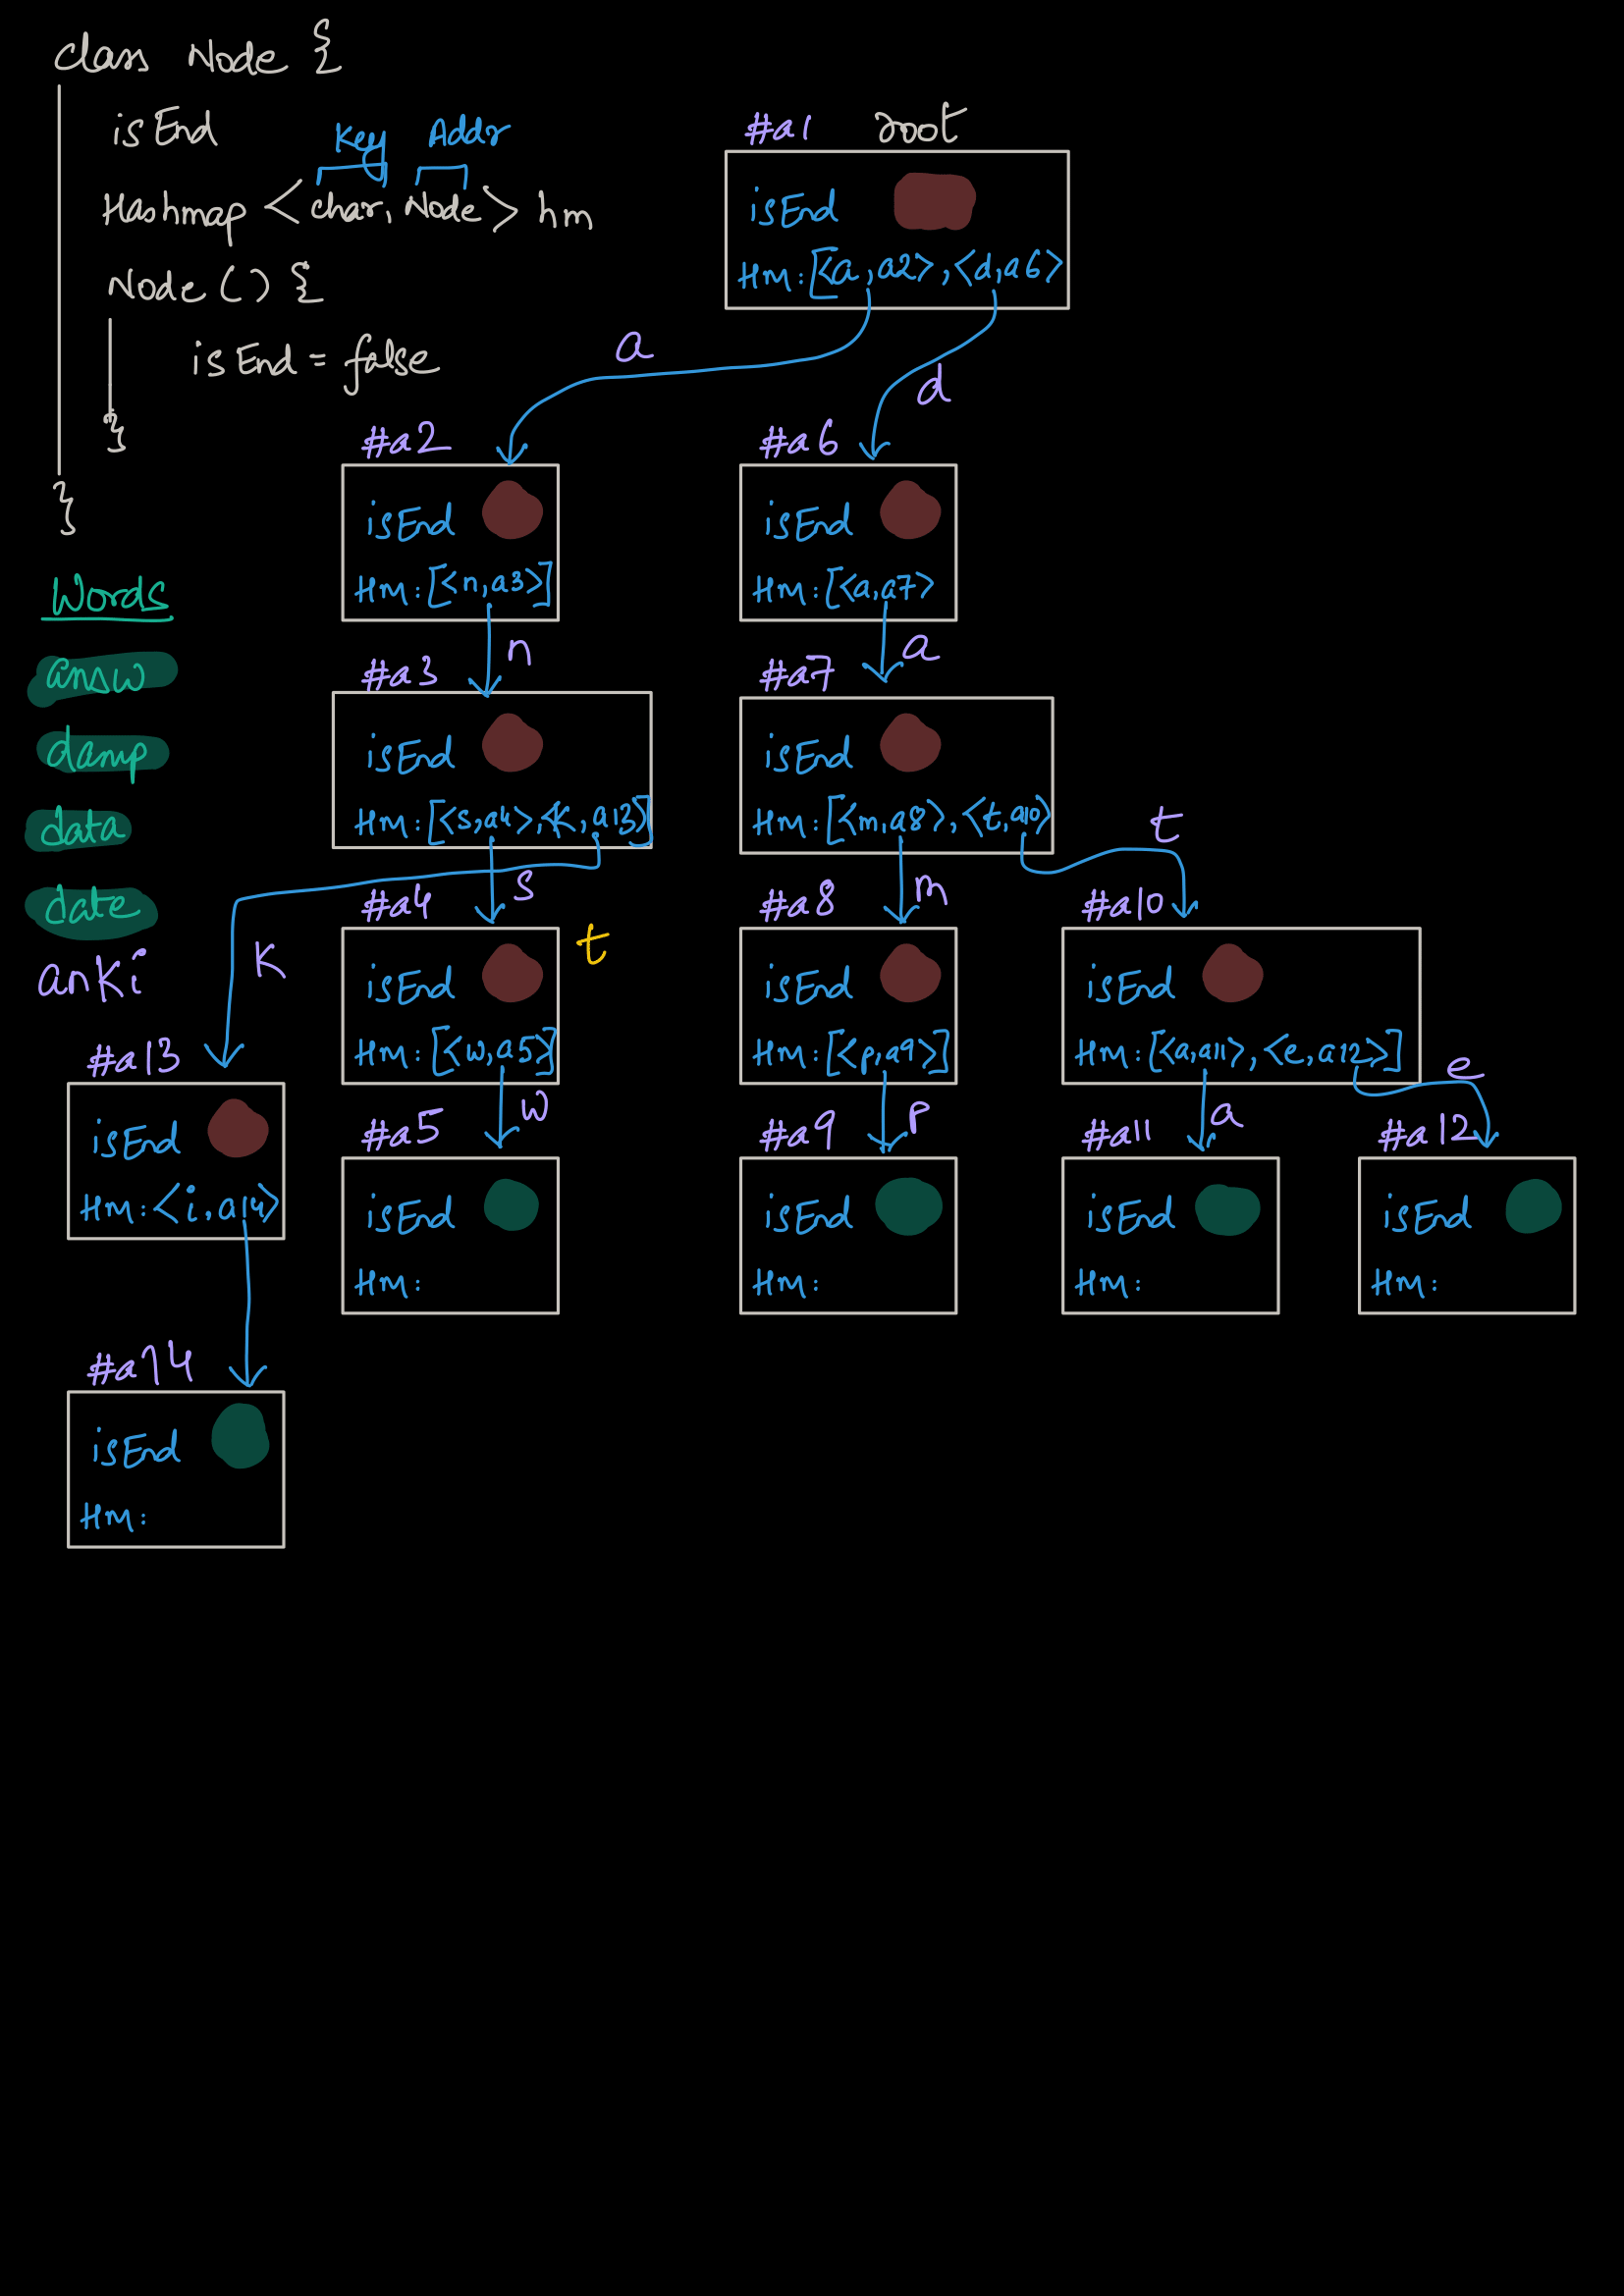 class Node {
isEnd
Key Addr
Hashmap <char, Node> hm
Node () {
isEnd = false
}
}
Words
answ
damp
data
date
anki
#a1 root
isEnd
Hm:[<a,a2>,<d,a6>
a
d
#a2
isEnd
Hm:[<n,a3>]
#a6
isEnd
Hm:[<a,a7>
n
a
#a3
isEnd
Hm:[<s,a4>,<k,a13>]
#a7
isEnd
Hm:[<m,a8>,<t,a10>
k
s
m
t
#a4
isEnd
Hm:[<w,a5>]
t
#a8
isEnd
Hm:[<p,a9>]
#a10
isEnd
Hm:[<a,a11>,<e,a12>]
#a13
isEnd
Hm:<i,a14>
w
p
a
e
#a5
isEnd
Hm:
#a9
isEnd
Hm:
#a11
isEnd
Hm:
#a12
isEnd
Hm:
#a14
isEnd
Hm: